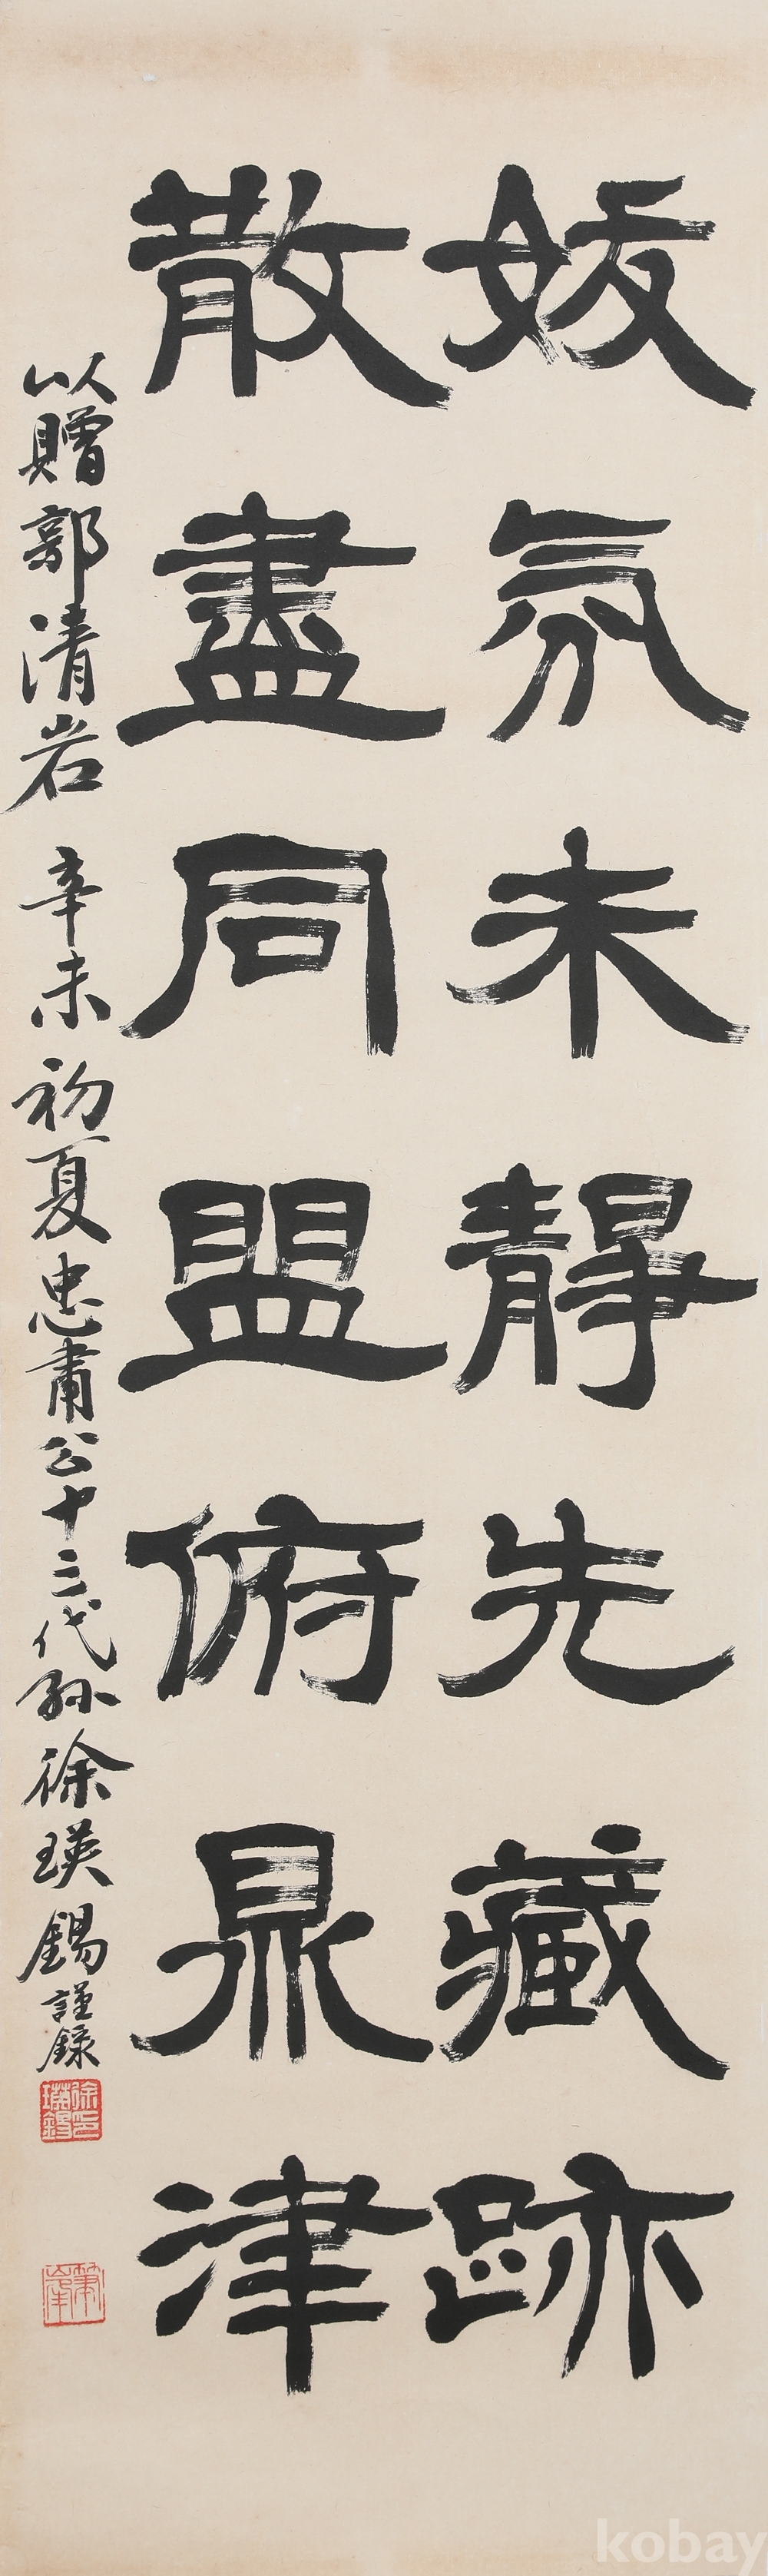 妭氛未靜先藏跡
散盡同盟俯鼎津
以贈郭清岩 辛未初夏忠肅公十三代孫徐瑛錫謹錄
kobay